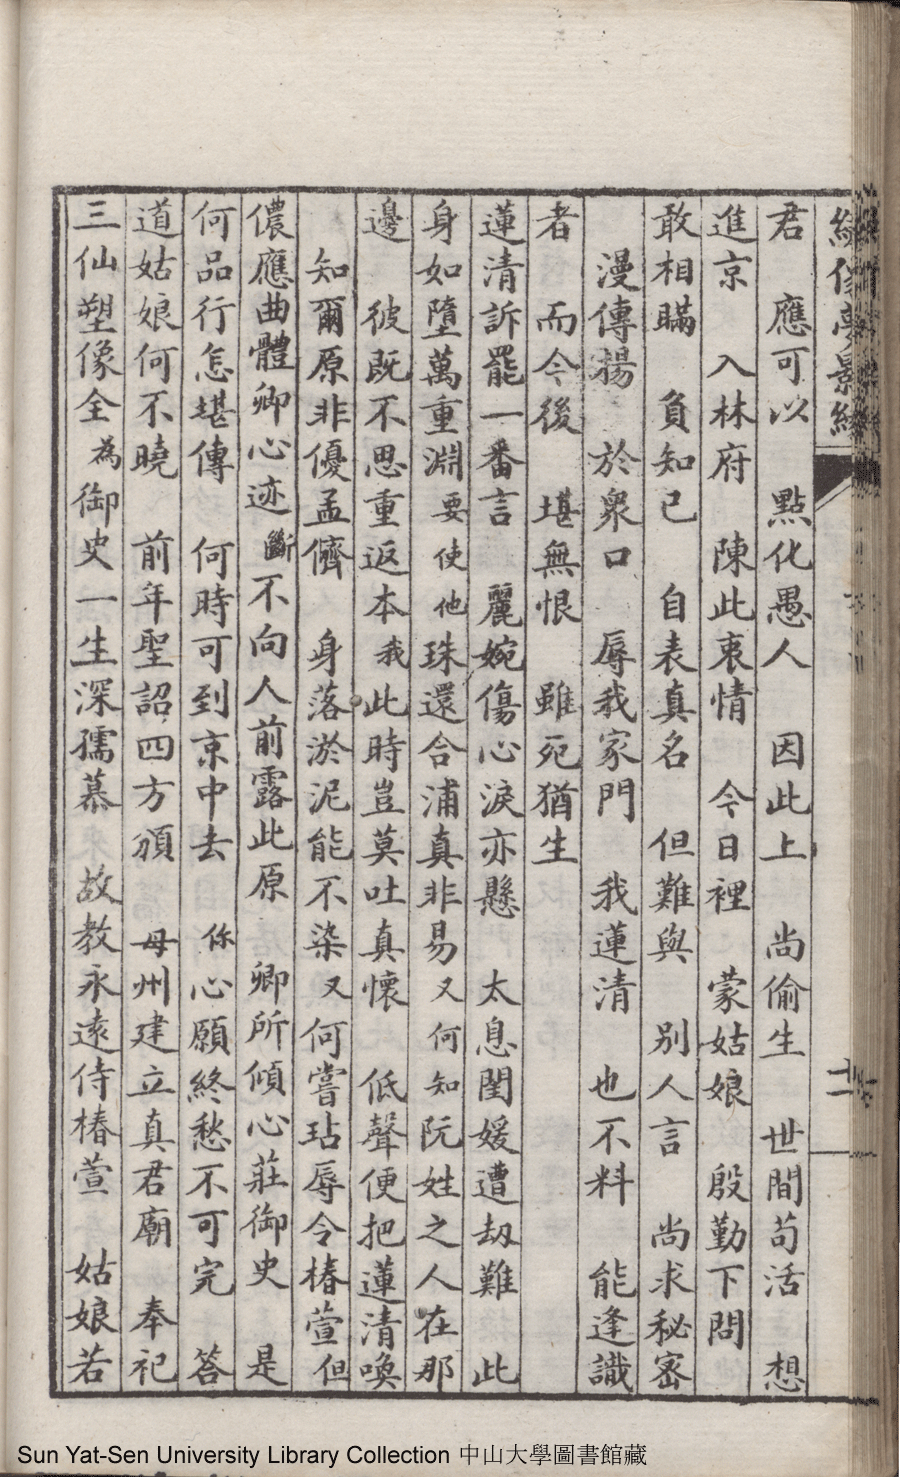 君 應可以 點化愚人 因此上 尚偷生 世間苟活 想
進京 入林府 陳此衷情 今日裡 蒙姑娘 殷勤下問
敢相瞞 負知已 自表真名 但難與 別人言 尚求秘密
漫傳揚 於衆口 辱我家門 我蓮清 也不料 能逢識
者 而今後 堪無恨 雖死猶生
蓮清訴罷一番言 麗婉傷心淚亦懸 太息閨媛遭劫難 此
身如墮萬重淵要使他珠還合浦真非易又何知阮姓之人在那
邊 彼既不思重返本我此時豈莫吐真懷 低聲便把蓮清喚
知爾原非優孟儕 身落淤泥能不染又何嘗玷辱令椿萱但
儂應曲體卿心迹斷不向人前露此原 卿所傾心莊御史 是
何品行怎堪傳 何時可到京中去 你心願終愁不可完 答
道姑娘何不曉 前年聖詔四方頒 毋州建立真君廟 奉祀
三仙塑像全為御史一生深孺慕 故教永遠侍椿萱 姑娘若
Sun Yat-Sen University Library Collection 中山大學圖書館藏